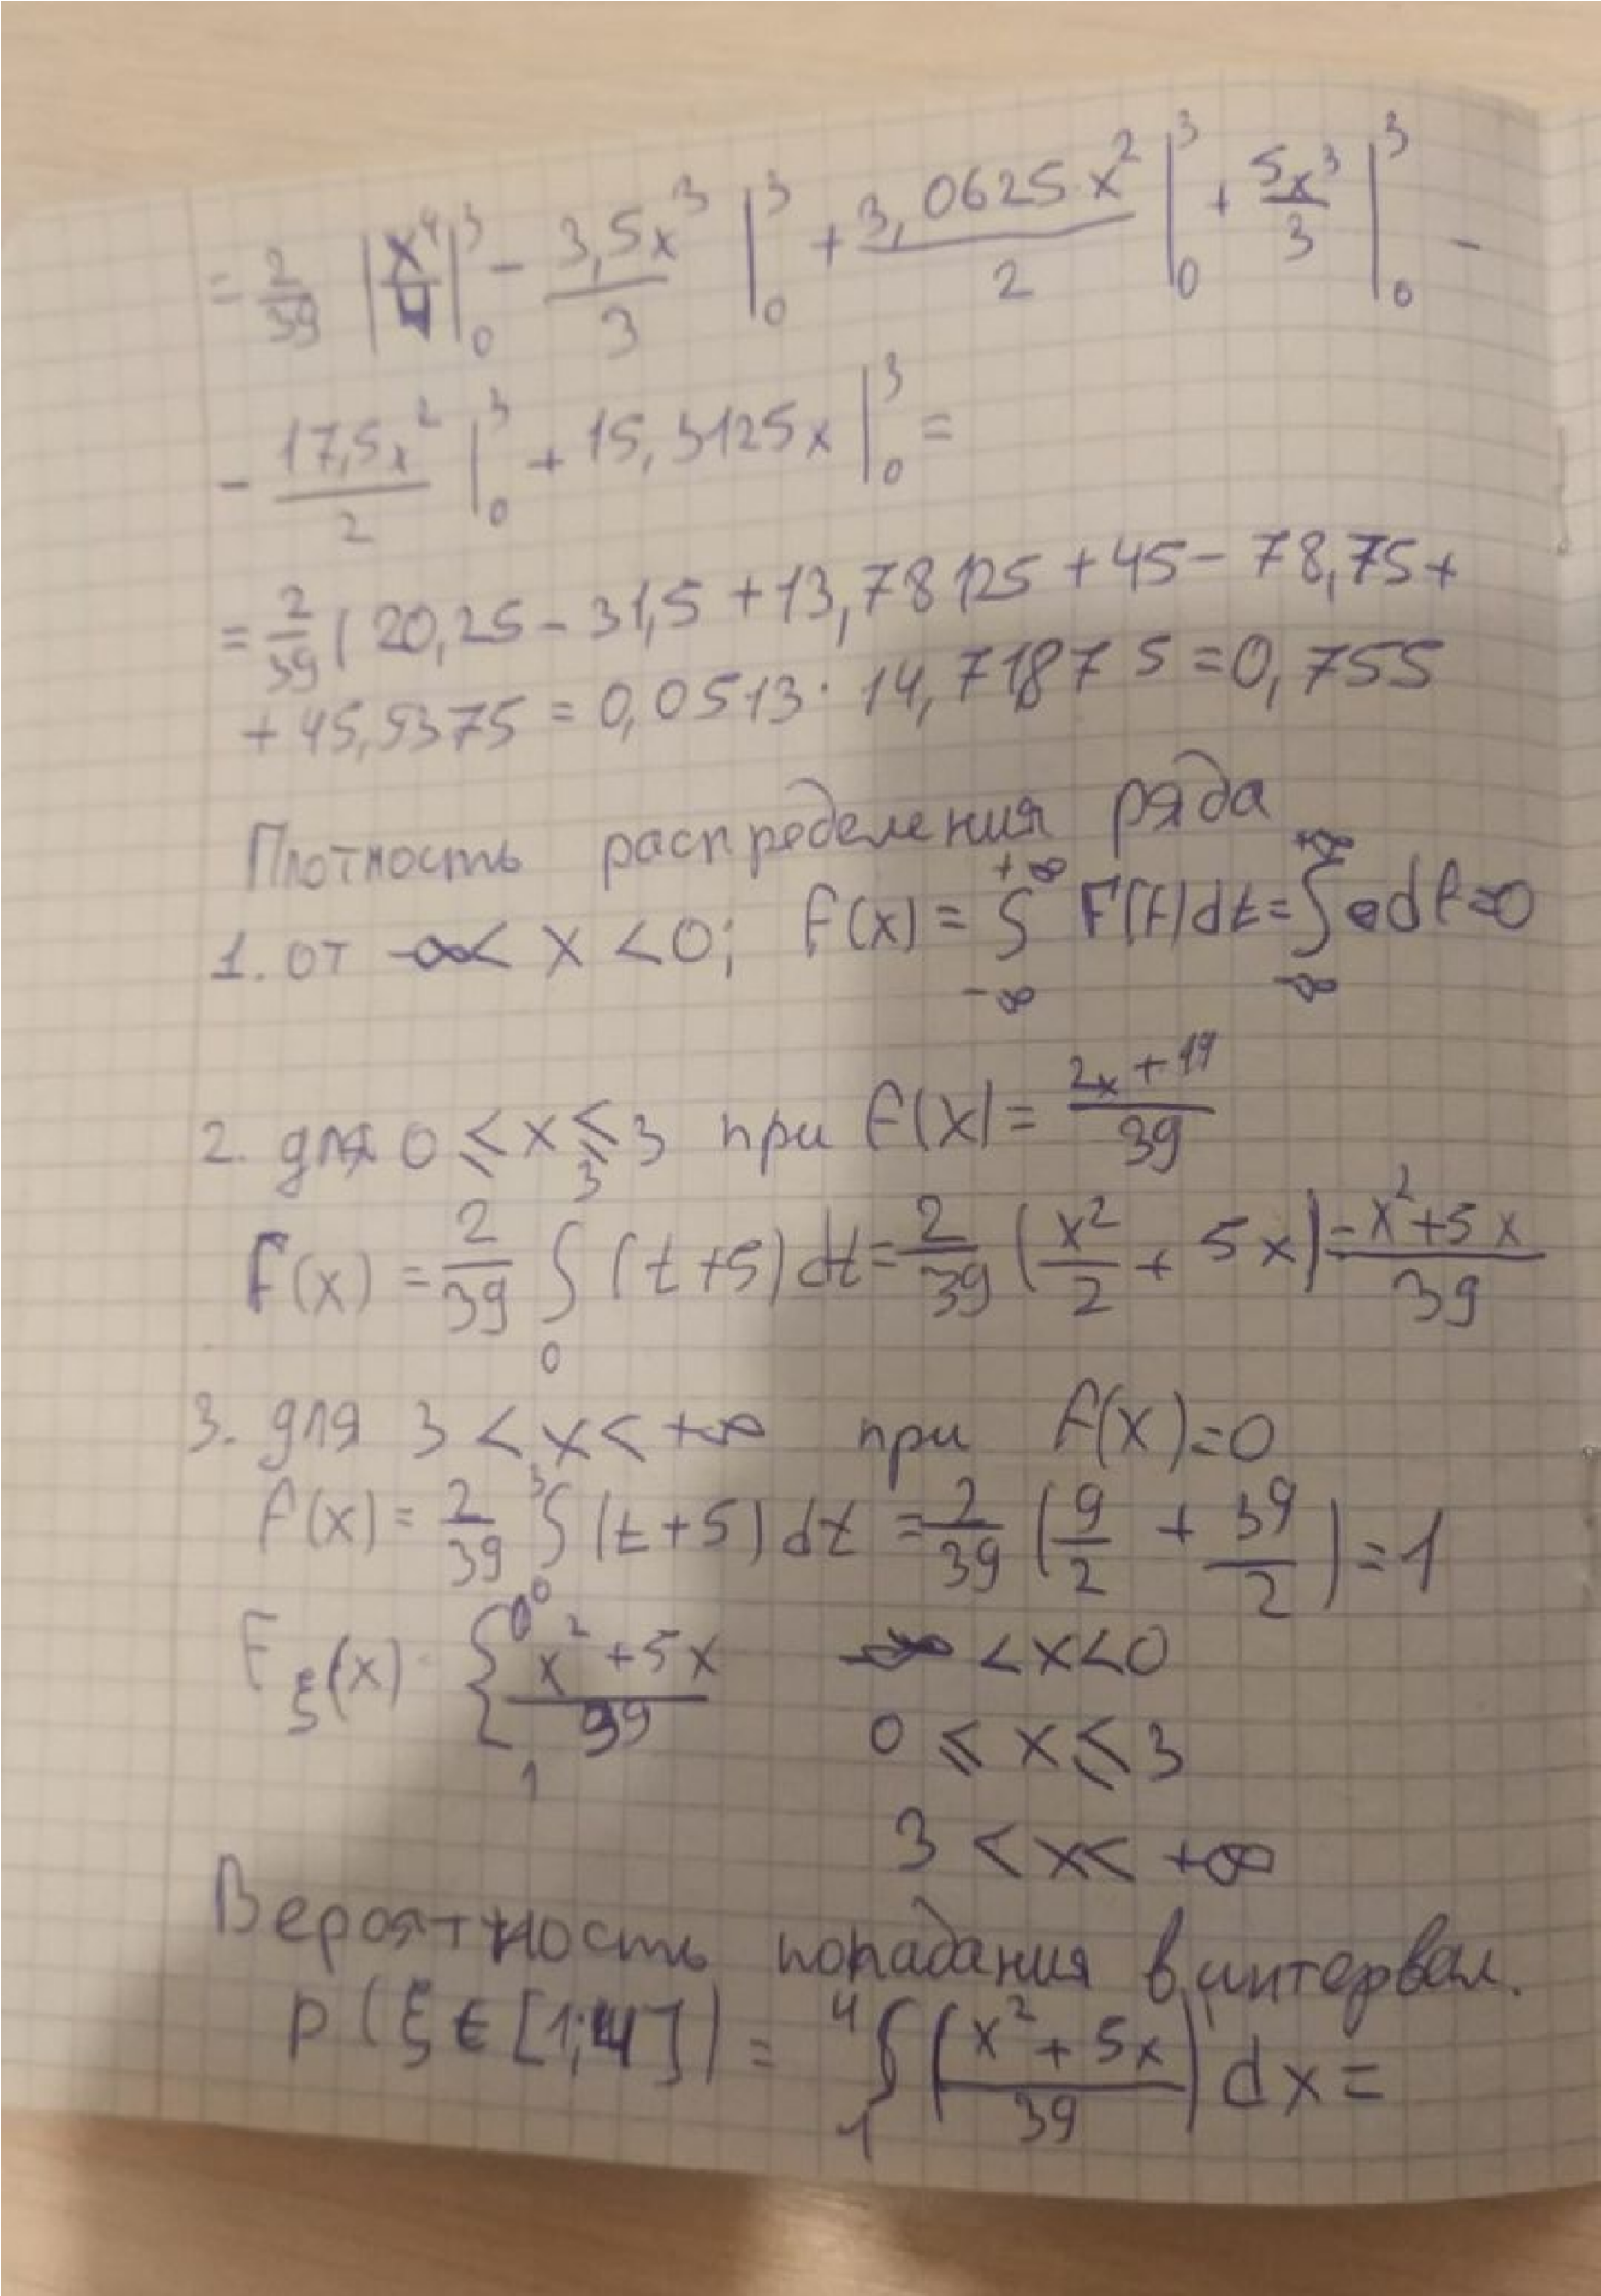 = 2/39 | x⁴/4 |₀³ - 3,5x³/3 |₀³ + 3,0625x²/2 |₀³ + 5x³/3 |₀³ -
- 17,5x²/2 |₀³ + 15,3125x |₀³ =
= 2/39 ( 20,25 - 31,5 + 13,78125 + 45 - 78,75 +
+ 45,9375 = 0,0513 · 14,71875 = 0,755
Плотность распределения ряда
1. от -∞ < x < 0; f(x) = ∫₋∞⁺∞ F(t)dt = ∫₋∞⁺∞ 0dt = 0
2. для 0 ≤ x ≤ 3 при f(x) = (2x + 19)/39
F(x) = 2/39 ∫₀³ (t+5) dt = 2/39 (x²/2 + 5x) = (x²+5x)/39
3. для 3 < x < +∞ при f(x) = 0
f(x) = 2/39 ∫₀³ (t+5) dt = 2/39 (9/2 + 39/2) = 1
F_ξ(x) { 0 -∞ < x < 0
(x²+5x)/39 0 ≤ x ≤ 3
1 3 < x < +∞
Вероятность попадания в интервал.
P(ξ ∈ [1;4]) = ∫₁⁴ ((x² + 5x)/39) dx =